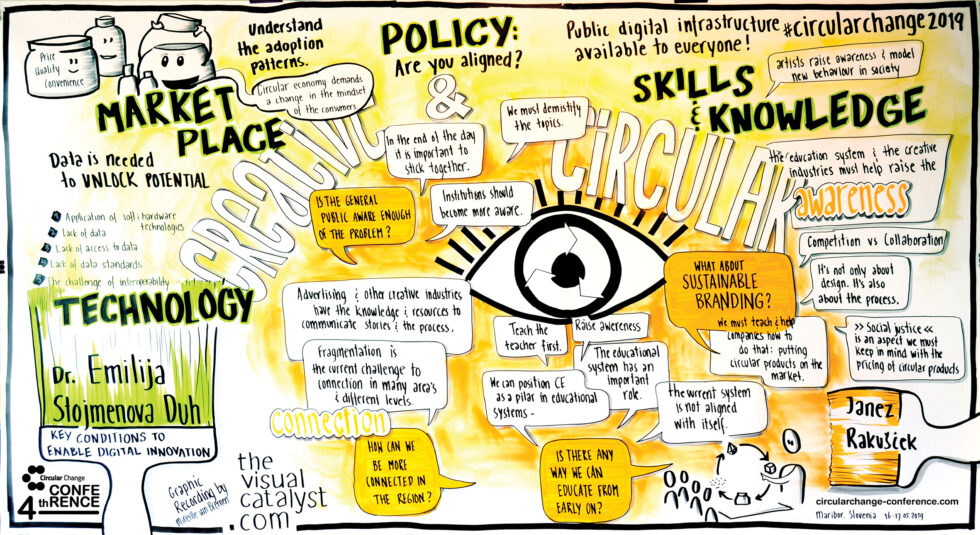 Price
Quality
Convenience
Understand
the adoption
patterns.
Circular economy demands
a change in the mindset
of the consumers
MARKET
PLACE
POLICY:
Are you aligned?
Public digital infrastructure
available to everyone!
#circularchange2019
artists raise awareness & model
new behaviour in society
SKILLS
& KNOWLEDGE
creative
&
CIRCULAR
Data is needed
to UNLOCK POTENTIAL
Application of soft & hardware
technologies
Lack of data
Lack of access to data
Lack of data standards
The challenge of interoperability
TECHNOLOGY
Dr. Emilija
Stojmenova Duh
KEY CONDITIONS TO
ENABLE DIGITAL INNOVATION
In the end of the day
it is important to
stick together.
We must demistify
the topics.
IS THE GENERAL
PUBLIC AWARE ENOUGH
OF THE PROBLEM?
Institutions should
become more aware.
the education system & the creative
industries must help raise the
awareness
Competition vs Collaboration
It's not only about
design. It's also
about the process.
>> Social justice <<
is an aspect we must
keep in mind with the
pricing of circular products
WHAT ABOUT
SUSTAINABLE
BRANDING?
We must teach & help
companies how to
do that: putting
circular products on the
market.
Advertising & other creative industries
have the knowledge & resources to
communicate stories & the process.
Fragmentation is
the current challenge to
connection in many area's
& different levels.
connection
HOW CAN WE
BE MORE
CONNECTED
IN THE REGION?
Teach the
teacher first.
Raise awareness
The educational
system has an
important
role.
We can position CE
as a pilar in educational
systems -
the current system
is not aligned
with itself.
IS THERE ANY
WAY WE CAN
EDUCATE FROM
EARLY ON?
Janez
Rakušček
Circular Change
4th CONFE
RENCE
Graphic
Recording by
the
visual
catalyst
.com
circularchange-conference.com
Maribor, Slovenia 16-17.05.2019